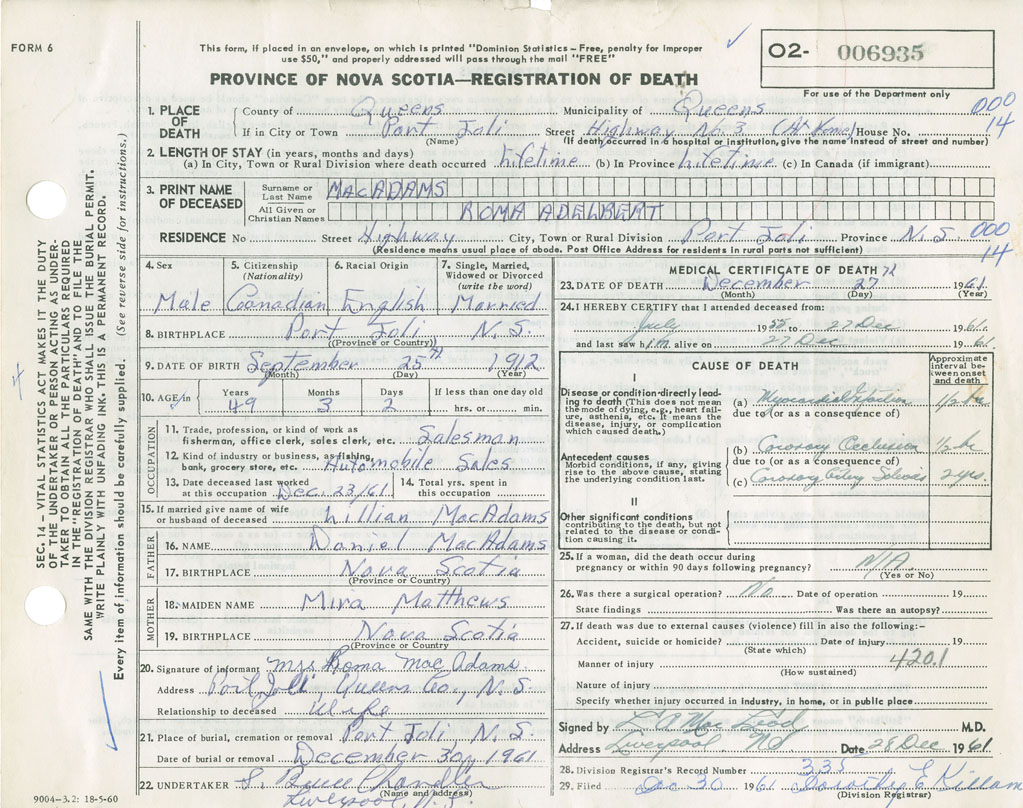 FORM 6
This form, if placed in an envelope, on which is printed "Dominion Statistics – Free, penalty for improper
use $50," and properly addressed will pass through the mail "FREE"
PROVINCE OF NOVA SCOTIA—REGISTRATION OF DEATH
O2- 006935
For use of the Department only
000
14
1. PLACE OF DEATH
County of Queens Municipality of Queens
If in City or Town Port Joli Street Highway No. 3 (At Home) House No.
(Name) (If death occurred in a hospital or institution, give the name instead of street and number)
2. LENGTH OF STAY (in years, months and days)
(a) In City, Town or Rural Division where death occurred Lifetime (b) In Province Lifetime (c) In Canada (if immigrant)
3. PRINT NAME OF DECEASED
Surname or Last Name MACADAMS
All Given or Christian Names ROMA ADELBERT
RESIDENCE No Street Highway City, Town or Rural Division Port Joli Province N.S.
000
14
(Residence means usual place of abode. Post Office Address for residents in rural parts not sufficient)
4. Sex Male
5. Citizenship (Nationality) Canadian
6. Racial Origin English
7. Single, Married, Widowed or Divorced (write the word) Married
8. BIRTHPLACE Port Joli N.S.
(Province or Country)
9. DATE OF BIRTH September 25th 1912
(Month) (Day) (Year)
10. AGE in Years 49 Months 3 Days 2 If less than one day old hrs. or min.
OCCUPATION
11. Trade, profession, or kind of work as fisherman, office clerk, sales clerk, etc. Salesman
12. Kind of industry or business, as fishing, bank, grocery store, etc. Automobile Sales
13. Date deceased last worked at this occupation Dec. 23/61
14. Total yrs. spent in this occupation
15. If married give name of wife or husband of deceased Lillian MacAdams
FATHER
16. NAME Daniel MacAdams
17. BIRTHPLACE Nova Scotia
(Province or Country)
MOTHER
18. MAIDEN NAME Mira Matthews
19. BIRTHPLACE Nova Scotia
(Province or Country
20. Signature of informant Mrs Roma MacAdams
Address Port Joli, Queens Co., N.S.
Relationship to deceased Wife
21. Place of burial, cremation or removal Port Joli N.S.
Date of burial or removal December 30, 1961
22. UNDERTAKER S. Bruce Chandler
(Name and address)
Liverpool, N.S.
MEDICAL CERTIFICATE OF DEATH
23. DATE OF DEATH December 27 1961
(Month) (Day) (Year)
24. I HEREBY CERTIFY that I attended deceased from:
July 1955 to 27 Dec 1961
and last saw him alive on 27 Dec 1961
CAUSE OF DEATH
Approximate interval between onset and death
I
Disease or condition directly leading to death (This does not mean the mode of dying, e.g., heart failure, asthenia, etc. It means the disease, injury, or complication which caused death.)
(a) Myocardial Infarction 1/2 hr
due to (or as a consequence of)
Antecedent causes
Morbid conditions, if any, giving rise to the above cause, stating the underlying condition last.
(b) Coronary Occlusion 1/2 hr
due to (or as a consequence of)
(c) Coronary 2 yrs.
II
Other significant conditions
contributing to the death, but not related to the disease or condition causing it.
25. If a woman, did the death occur during pregnancy or within 90 days following pregnancy? N/A
(Yes or No)
26. Was there a surgical operation? No Date of operation 19
State findings Was there an autopsy?
27. If death was due to external causes (violence) fill in also the following:-
Accident, suicide or homicide? Date of injury 19
(State which)
Manner of injury 420.1
(How sustained)
Nature of injury
Specify whether injury occurred in industry, in home, or in public place
Signed by MacLeod M.D.
Address Liverpool NS Date 28 Dec 1961
28. Division Registrar's Record Number 335
29. Filed Dec 30 1961 Dorothy E Killam
(Division Registrar)
SEC. 14 – VITAL STATISTICS ACT MAKES IT THE DUTY
OF THE UNDERTAKER OR PERSON ACTING AS UNDER-
TAKER TO OBTAIN ALL THE PARTICULARS REQUIRED
IN THE "REGISTRATION OF DEATH" AND TO FILE THE
SAME WITH THE DIVISION REGISTRAR WHO SHALL ISSUE THE BURIAL PERMIT.
WRITE PLAINLY WITH UNFADING INK. THIS IS A PERMANENT RECORD.
Every item of information should be carefully supplied. (See reverse side for instructions.)
9004-3.2: 18-5-60